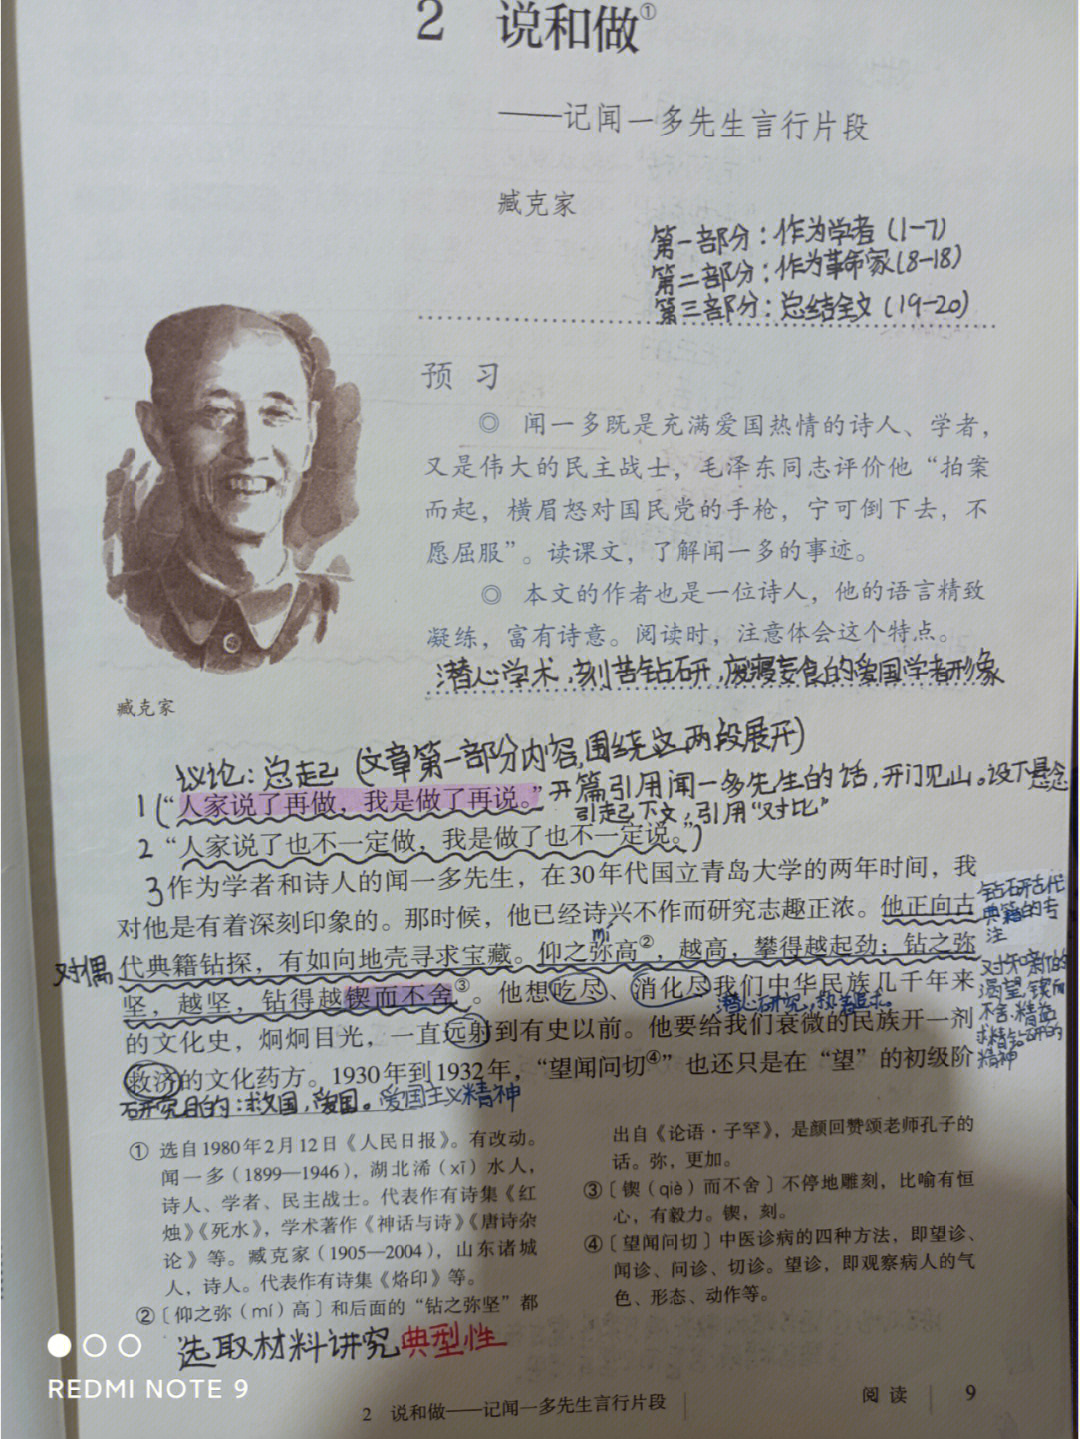 2 说和做①
——记闻一多先生言行片段
臧克家
第一部分：作为学者（1-7）
第二部分：作为革命家（8-18）
第三部分：总结全文（19-20）
预 习
◎ 闻一多既是充满爱国热情的诗人、学者，
又是伟大的民主战士，毛泽东同志评价他“拍案
而起，横眉怒对国民党的手枪，宁可倒下去，不
愿屈服”。读课文，了解闻一多的事迹。
◎ 本文的作者也是一位诗人，他的语言精致
凝练，富有诗意。阅读时，注意体会这个特点。
潜心学术，刻苦钻研，废寝忘食的爱国学者形象
臧克家
议论：总起（文章第一部分内容，围绕这两段展开）
1（“人家说了再做，我是做了再说。”开篇引用闻一多先生的话，开门见山。设下悬念
引起下文，引用“对比”
2 “人家说了也不一定做，我是做了也不一定说。”）
3 作为学者和诗人的闻一多先生，在30年代国立青岛大学的两年时间，我
对他是有着深刻印象的。那时候，他已经诗兴不作而研究志趣正浓。他正向古
钻研古代
典籍的专
注
mí
对偶
代典籍钻探，有如向地壳寻求宝藏。仰之弥高②，越高，攀得越起劲；钻之弥
坚，越坚，钻得越锲而不舍③。他想吃尽、消化尽我们中华民族几千年来
潜心研究，执着追求。
对知识的
渴望，锲而
不舍，精益
求精钻研的
精神
的文化史，炯炯目光，一直远射到有史以前。他要给我们衰微的民族开一剂
救济的文化药方。1930年到1932年，“望闻问切④”也还只是在“望”的初级阶
研究目的：救国，爱国。爱国主义精神
① 选自1980年2月12日《人民日报》。有改动。
闻一多（1899—1946），湖北浠（xī）水人，
诗人、学者、民主战士。代表作有诗集《红
烛》《死水》，学术著作《神话与诗》《唐诗杂
论》等。臧克家（1905—2004），山东诸城
人，诗人。代表作有诗集《烙印》等。
②〔仰之弥（mí）高〕和后面的“钻之弥坚”都
出自《论语·子罕》，是颜回赞颂老师孔子的
话。弥，更加。
③〔锲（qiè）而不舍〕不停地雕刻，比喻有恒
心，有毅力。锲，刻。
④〔望闻问切〕中医诊病的四种方法，即望诊、
闻诊、问诊、切诊。望诊，即观察病人的气
色、形态、动作等。
选取材料讲究典型性
REDMI NOTE 9
2 说和做——记闻一多先生言行片段
阅读 9